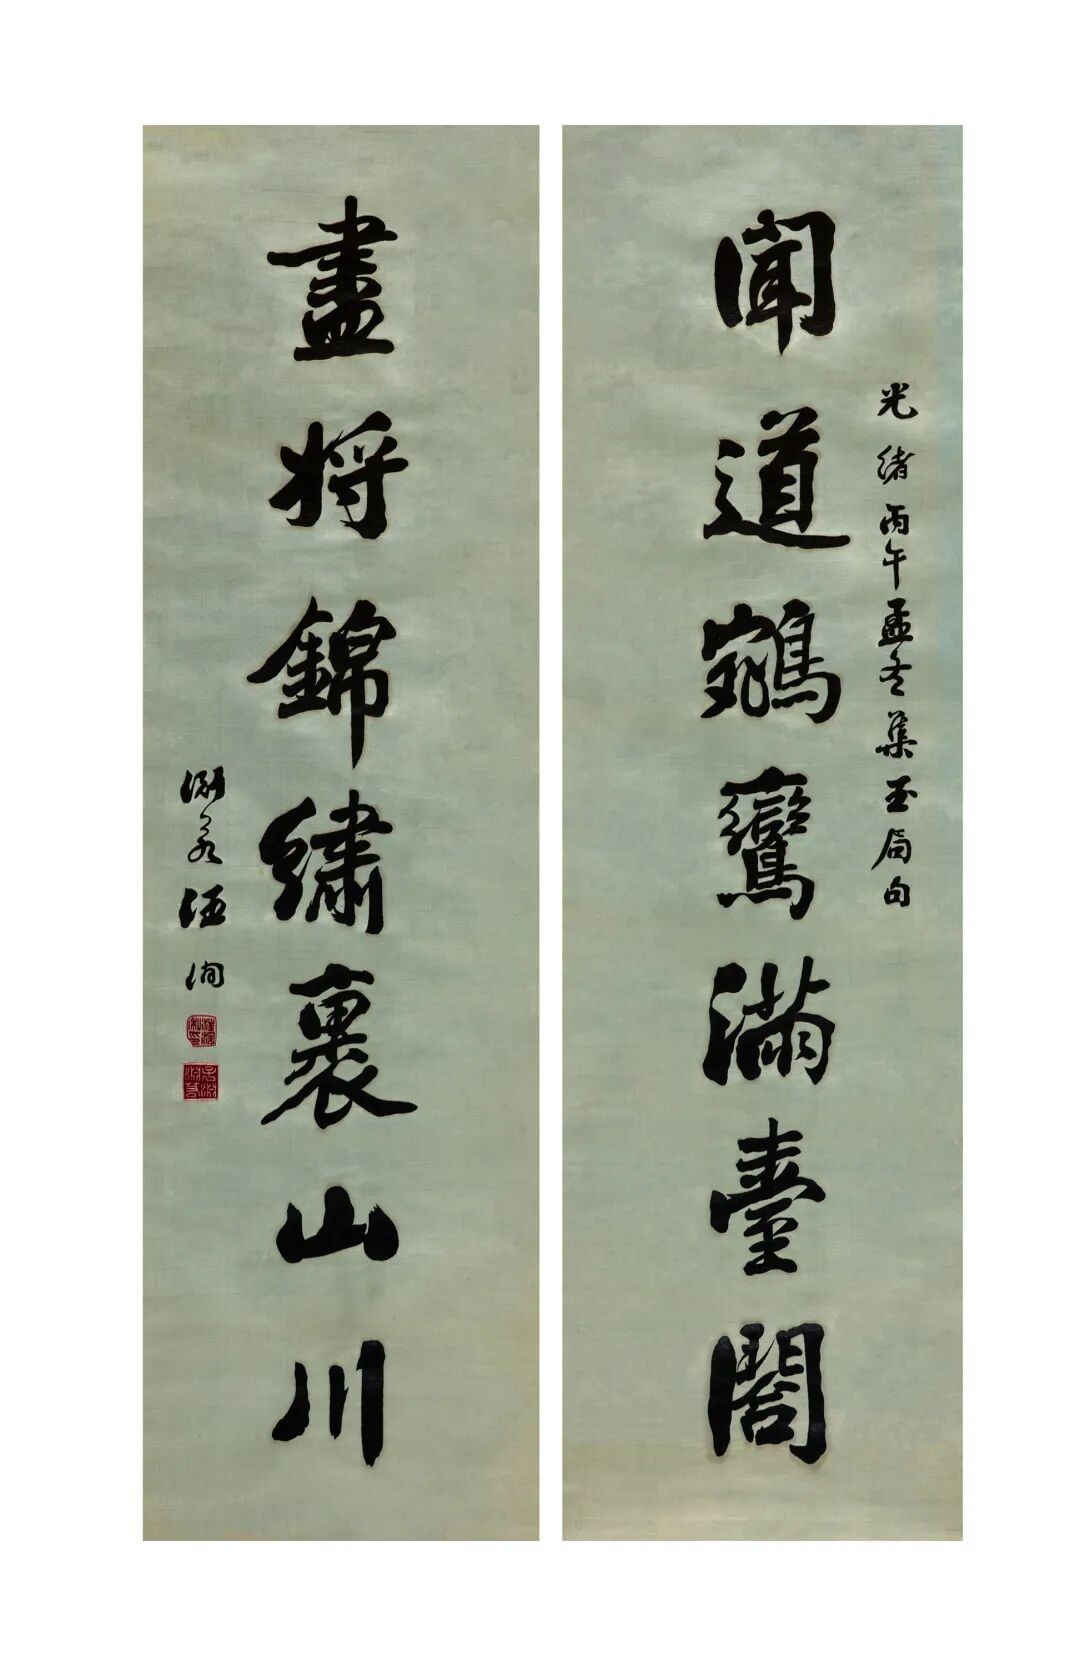 聞道鵷鸞滿臺閣
光緒丙午孟冬集玉局句
盡將錦繡裹山川
淵若汪洵